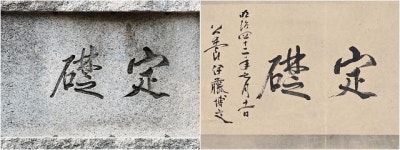 定礎
定礎
明治四十二年七月十一日
公爵伊藤博文